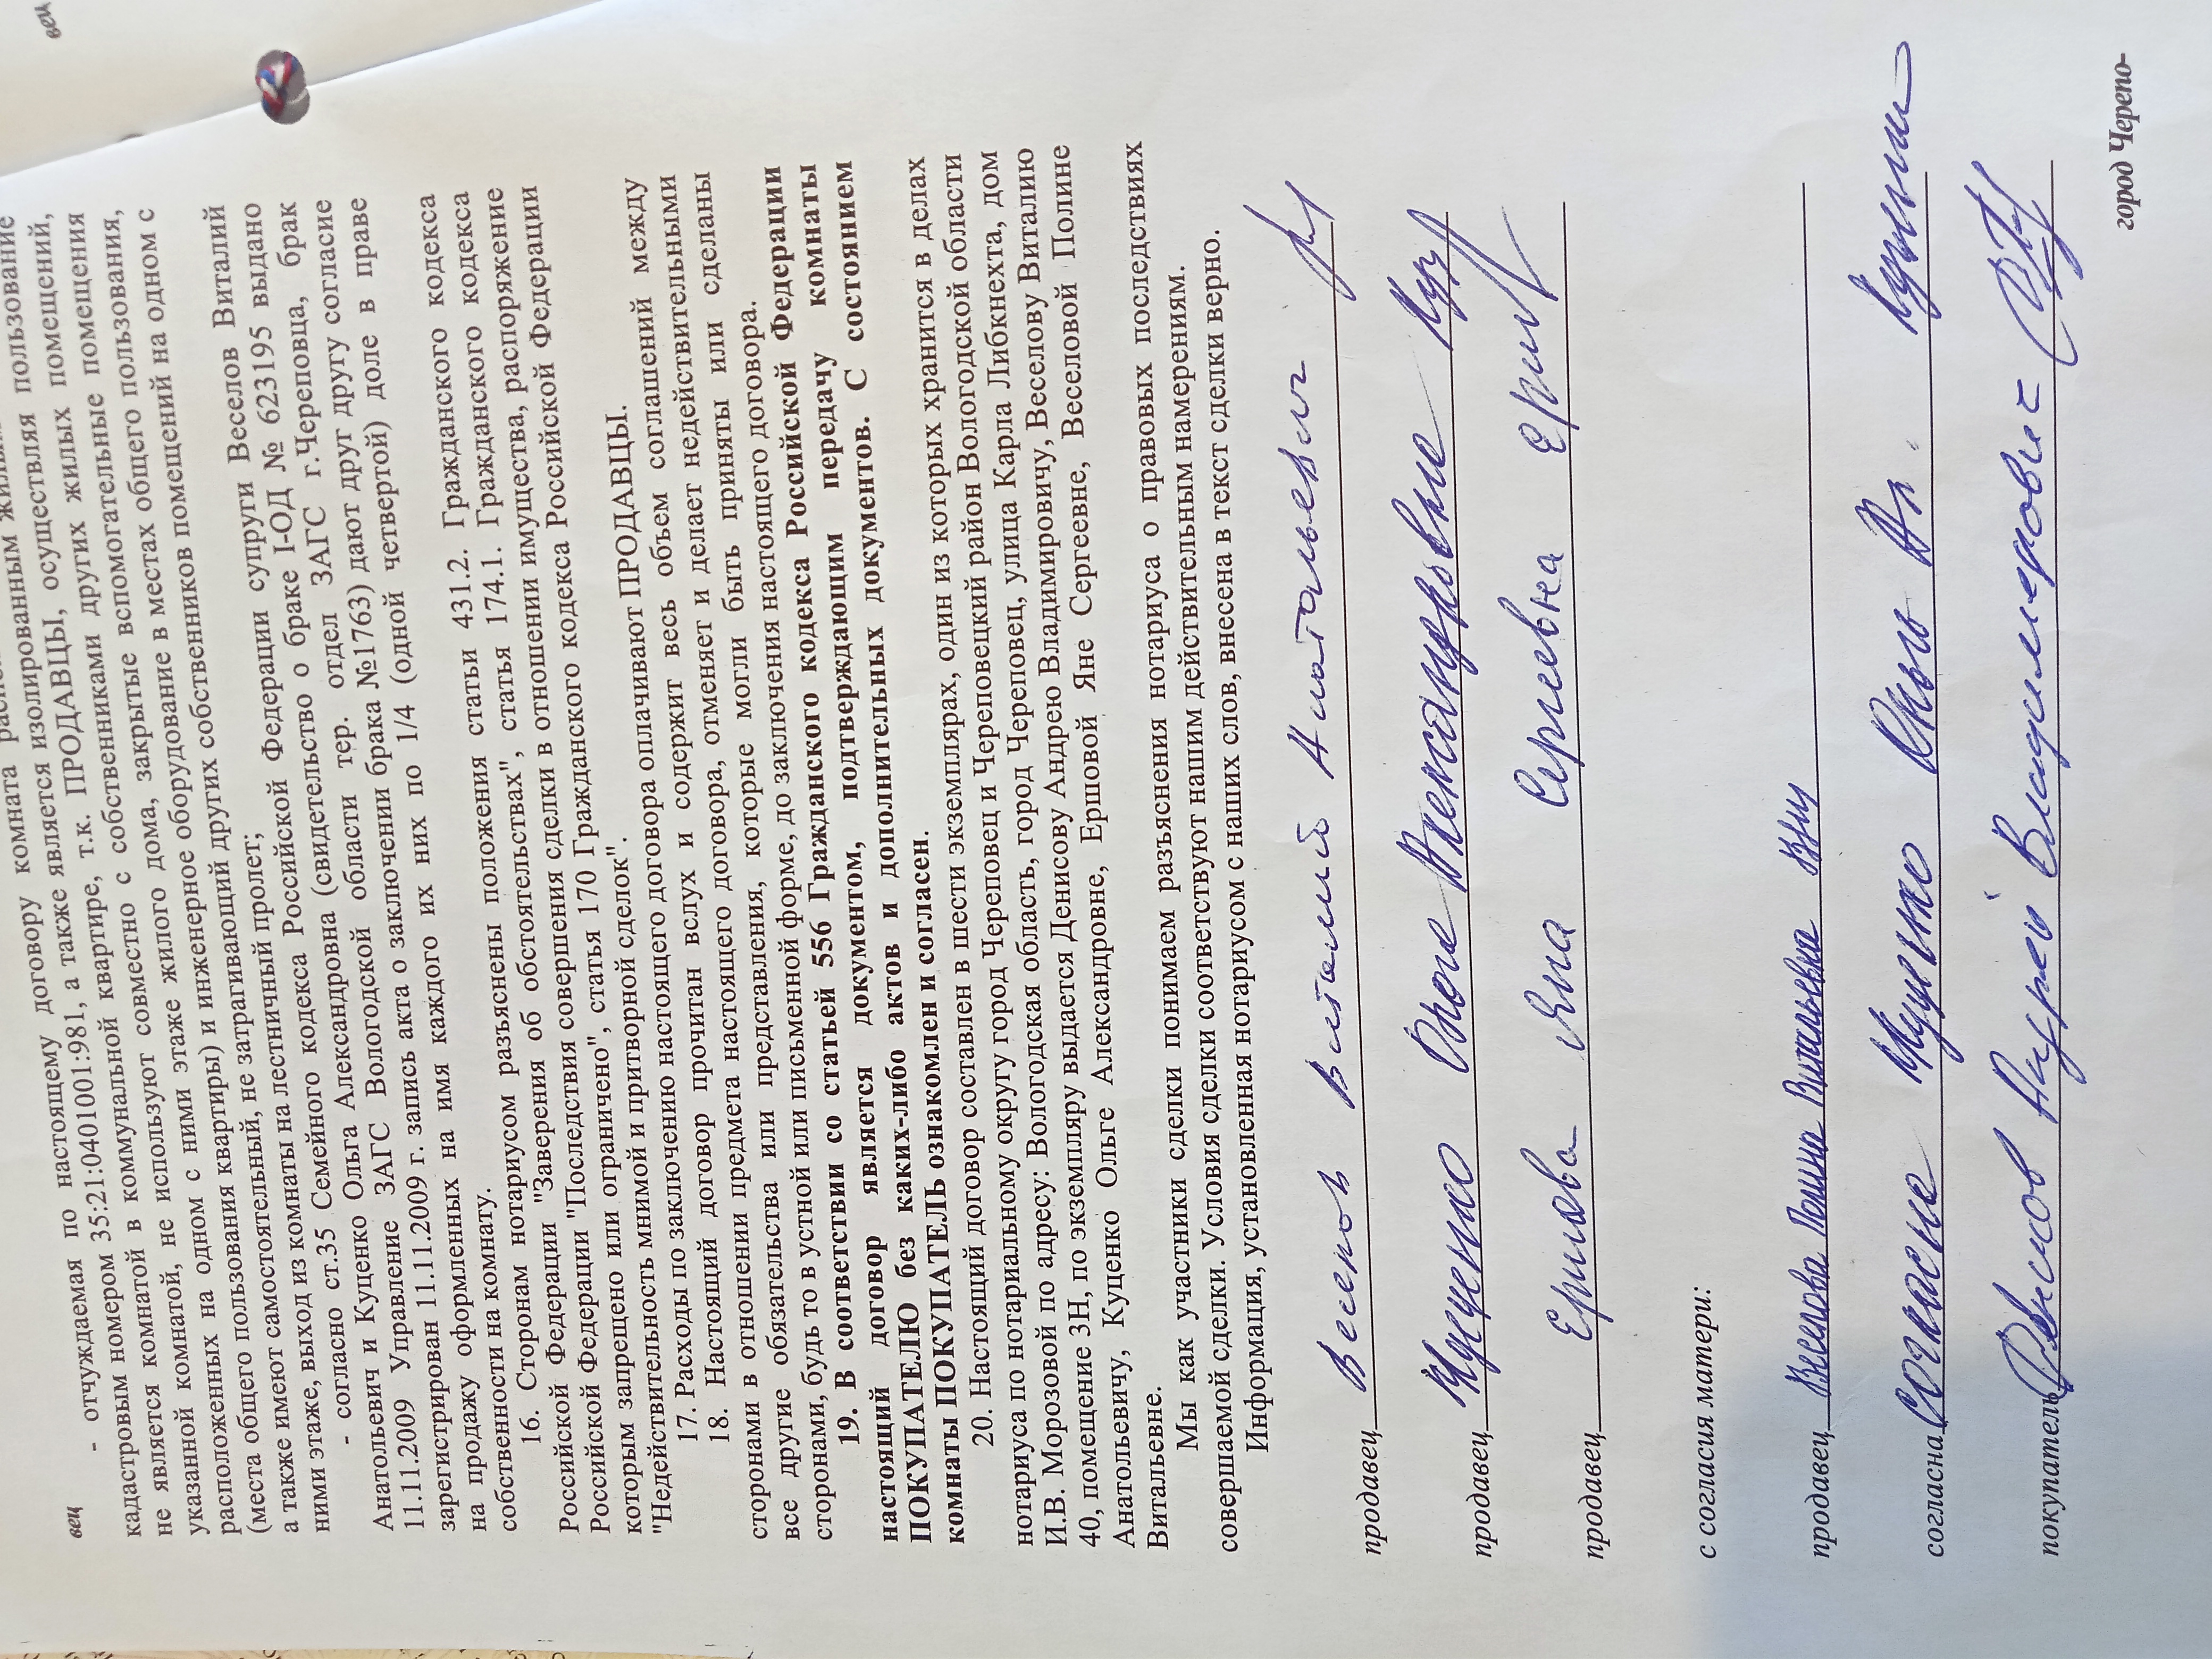 вец
- отчуждаемая по настоящему договору комната
кадастровым номером 35:21:0401001:981, а также является изолированным пользование
не является комнатой в коммунальной квартире, т.к. ПРОДАВЦЫ, осуществляя
указанной комнатой, не используют совместно с собственниками других жилых помещений,
расположенных на одном с ними этаже жилого дома, закрытые вспомогательные помещения
(места общего пользования квартиры) и инженерное оборудование в местах общего пользования,
а также имеют самостоятельный, не затрагивающий других собственников помещений на одном с
ними этаже, выход из комнаты на лестничный пролет;
- согласно ст.35 Семейного кодекса Российской Федерации супруги Веселов Виталий
Анатольевич и Куценко Ольга Александровна (свидетельство о браке I-ОД № 623195 выдано
11.11.2009 Управление ЗАГС Вологодской области тер. отдел ЗАГС г.Череповца, брак
зарегистрирован 11.11.2009 г. запись акта о заключении брака №1763) дают друг другу согласие
на продажу оформленных на имя каждого их них по 1/4 (одной четвертой) доле в праве
собственности на комнату.
16. Сторонам нотариусом разъяснены положения статьи 431.2. Гражданского кодекса
Российской Федерации "Заверения об обстоятельствах", статья 174.1. Гражданского кодекса
Российской Федерации "Последствия совершения сделки в отношении имущества, распоряжение
которым запрещено или ограничено", статья 170 Гражданского кодекса Российской Федерации
"Недействительность мнимой и притворной сделок".
17. Расходы по заключению настоящего договора оплачивают ПРОДАВЦЫ.
18. Настоящий договор прочитан вслух и содержит весь объем соглашений между
сторонами в отношении предмета настоящего договора, отменяет и делает недействительными
все другие обязательства или представления, которые могли быть приняты или сделаны
сторонами, будь то в устной или письменной форме, до заключения настоящего договора.
19. В соответствии со статьей 556 Гражданского кодекса Российской Федерации
настоящий договор является документом, подтверждающим передачу комнаты
ПОКУПАТЕЛЮ без каких-либо актов и дополнительных документов. С состоянием
комнаты ПОКУПАТЕЛЬ ознакомлен и согласен.
20. Настоящий договор составлен в шести экземплярах, один из которых хранится в делах
нотариуса по нотариальному округу город Череповец и Череповецкий район Вологодской области
И.В. Морозовой по адресу: Вологодская область, город Череповец, улица Карла Либкнехта, дом
40, помещение 3Н, по экземпляру выдается Денисову Андрею Владимировичу, Веселову Виталию
Анатольевичу, Куценко Ольге Александровне, Ершовой Яне Сергеевне, Веселовой Полине
Витальевне.
Мы как участники сделки понимаем разъяснения нотариуса о правовых последствиях
совершаемой сделки. Условия сделки соответствуют нашим действительным намерениям.
Информация, установленная нотариусом с наших слов, внесена в текст сделки верно.
продавец Веселов Виталий Анатольевич
продавец Куценко Ольга Александровна
продавец Ершова Яна Сергеевна
с согласия матери:
продавец Веселова Полина Витальевна
согласна согласна Куценко Ольга Ал.
покупатель Денисов Андрей Владимирович
город Черепо-
вец